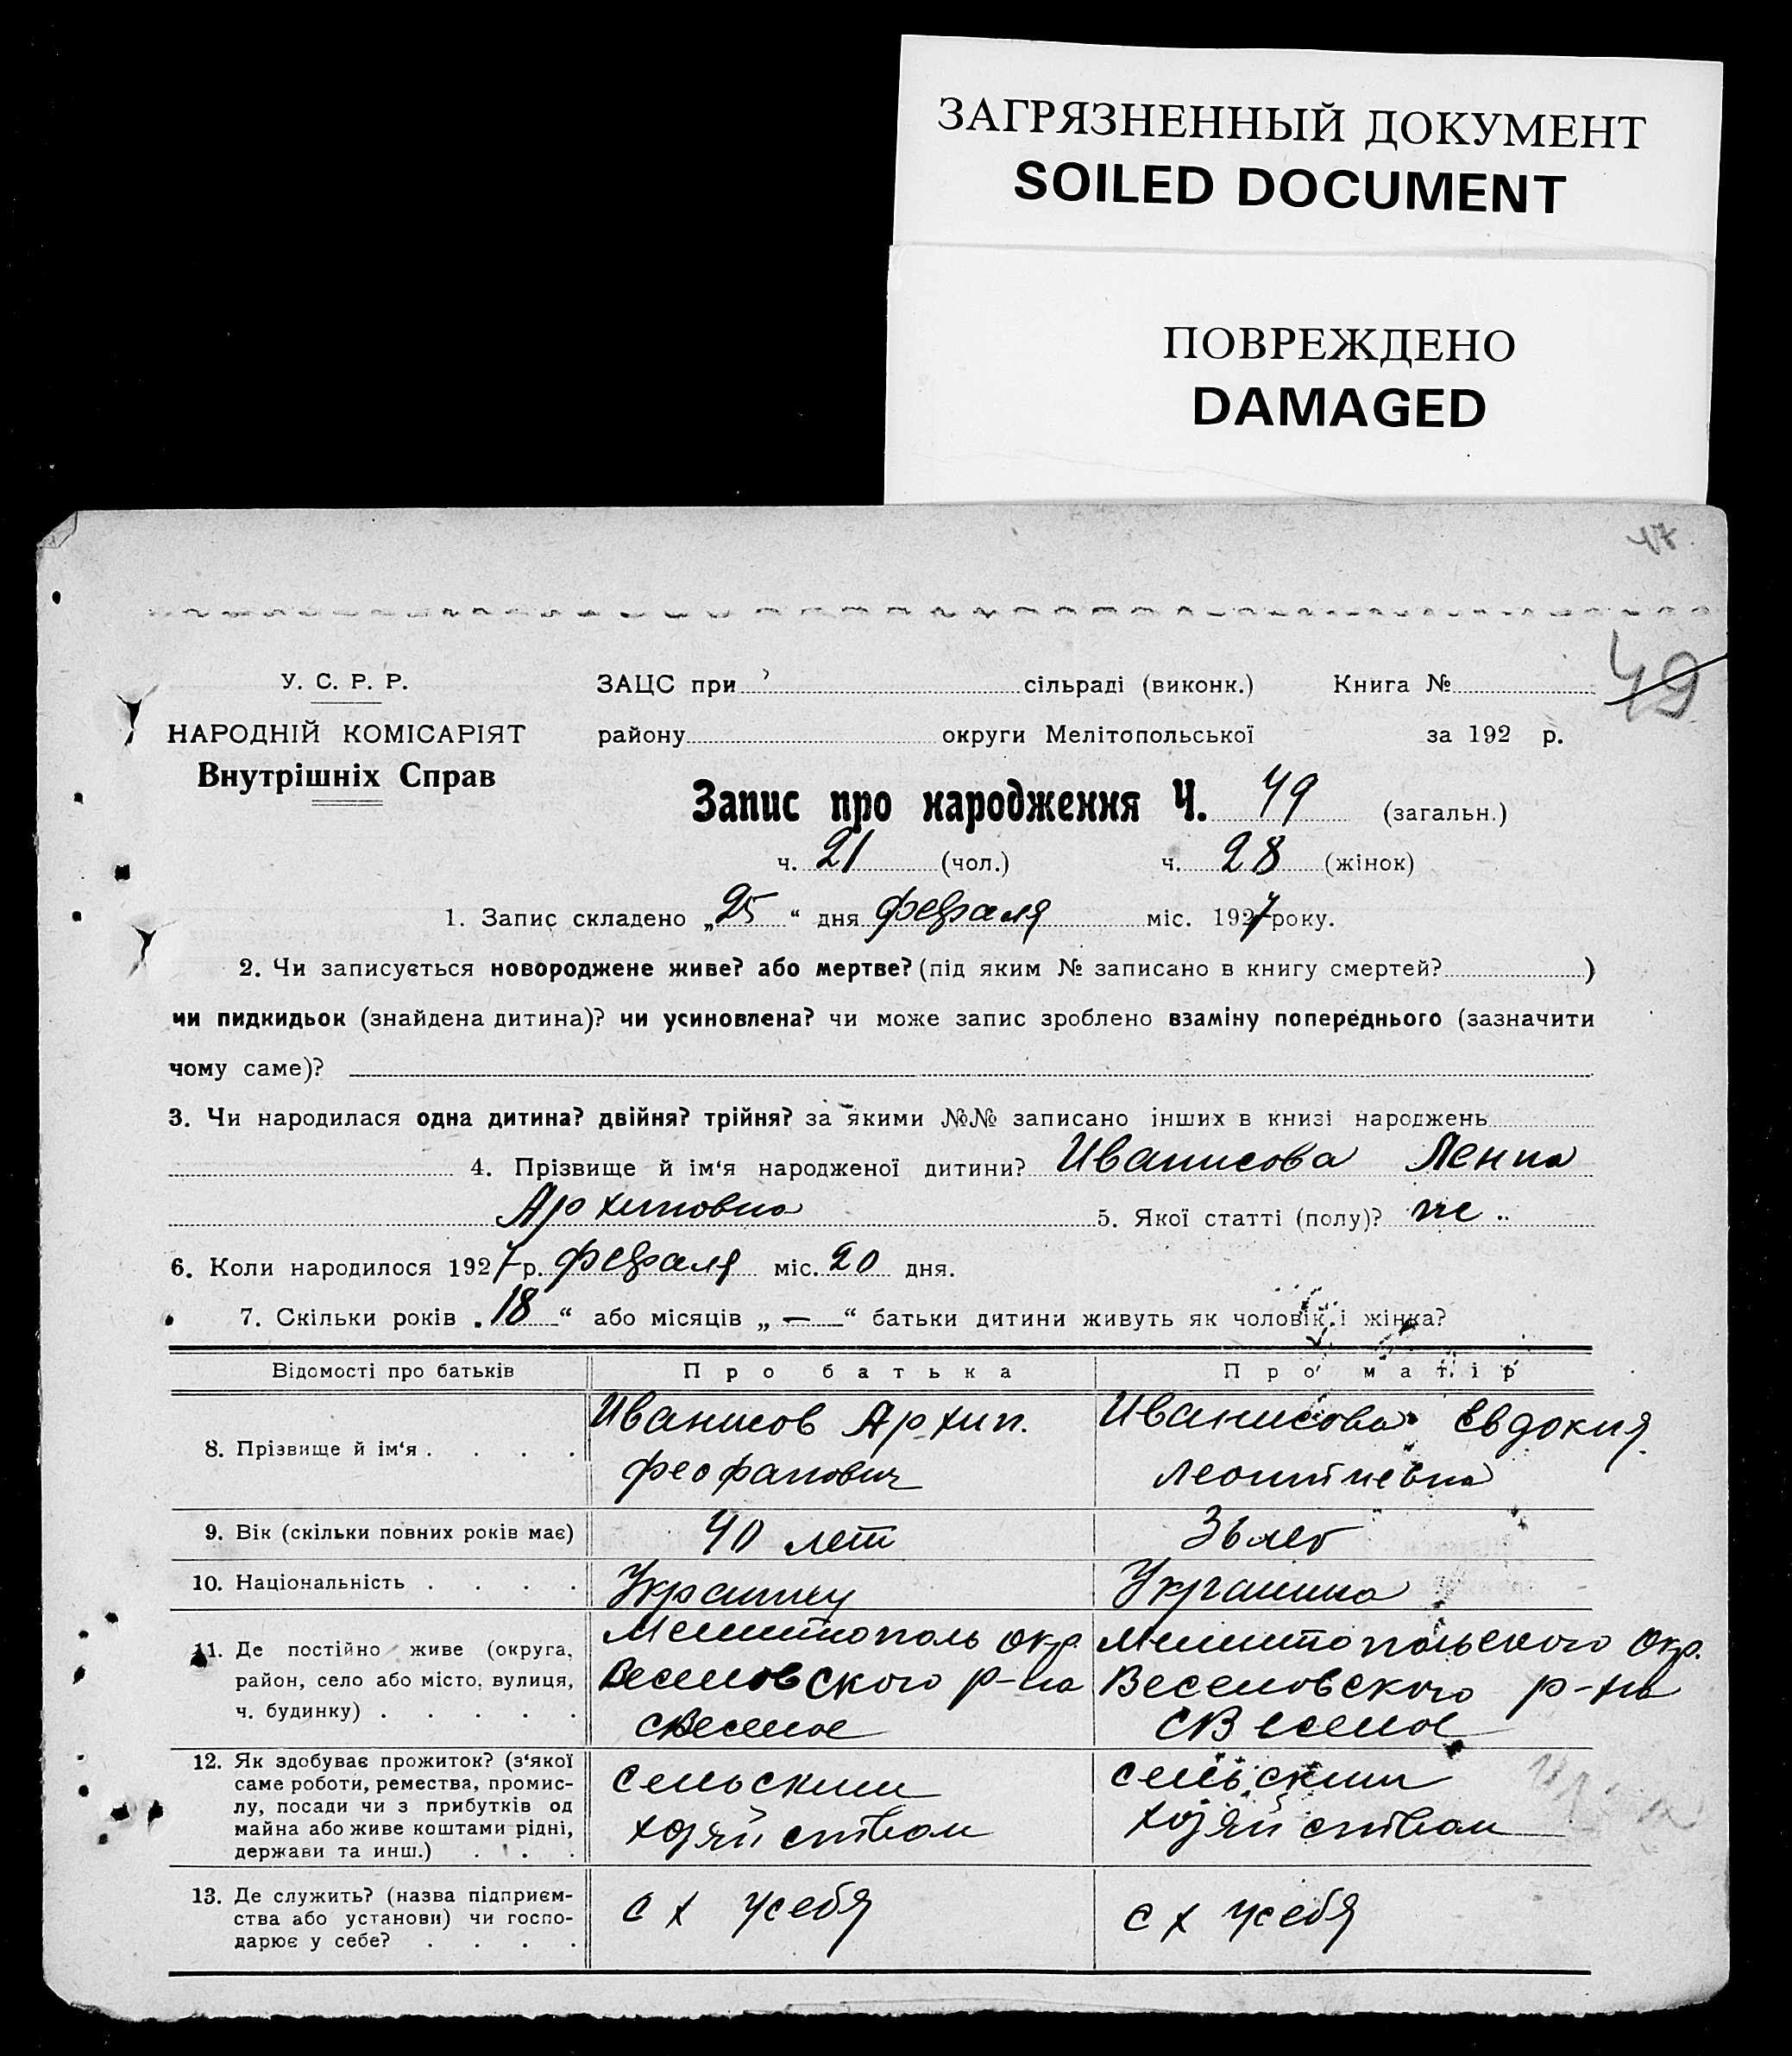 ЗАГРЯЗНЕННЫЙ ДОКУМЕНТ
SOILED DOCUMENT
ПОВРЕЖДЕНО
DAMAGED
У. С. Р. Р.
НАРОДНІЙ КОМІСАРІЯТ
Внутрішніх Справ
ЗАЦС при сільраді (виконк.) Книга № 49
району округи Мелітопольської за 192 р.
Запис про народження Ч. 49 (загальн.)
ч. 21 (чол.) ч. 28 (жінок)
1. Запис складено „25“ дня февраля міс. 1927 року.
2. Чи записується новороджене живе? або мертве? (під яким № записано в книгу смертей? )
чи пидкидьок (знайдена дитина)? чи усиновлена? чи може запис зроблено взаміну попереднього (зазначити
чому саме)?
3. Чи народилася одна дитина? двійня? трійня? за якими №№ записано інших в книзі народжень
4. Прізвище й ім‘я народженої дитини? Иванисова Ленна
Архиповна 5. Якої статті (полу)? же..
6. Коли народилося 1927 р. февраля міс. 20 дня.
7. Скільки років „18“ або місяців „—“ батьки дитини живуть як чоловік і жінка?
Відомості про батьків Про батька Про матір
8. Прізвище й ім‘я . . . . Иванисов Архип. Феофанович Иванисова Евдокия Леонтиевна
9. Вік (скільки повних років має) 40 лет 36 лет
10. Національність . . . . Украинец Украинка
11. Де постійно живе (округа,
район, село або місто, вулиця,
ч. будинку) . . . . .
Мелитополь окр. Мелитопольского окр.
Веселовского р-на Веселовского р-на
с Веселое с Веселое
12. Як здобуває прожиток? (з‘якої
саме роботи, ремества, промис-
лу, посади чи з прибутків од
майна або живе коштами рідні,
держави та инш.) . . .
сельским сельским
хозяйством хозяйством
13. Де служить? (назва підприєм-
ства або установи) чи госпо-
дарює у себе? . . . .
с х у себя с х у себя